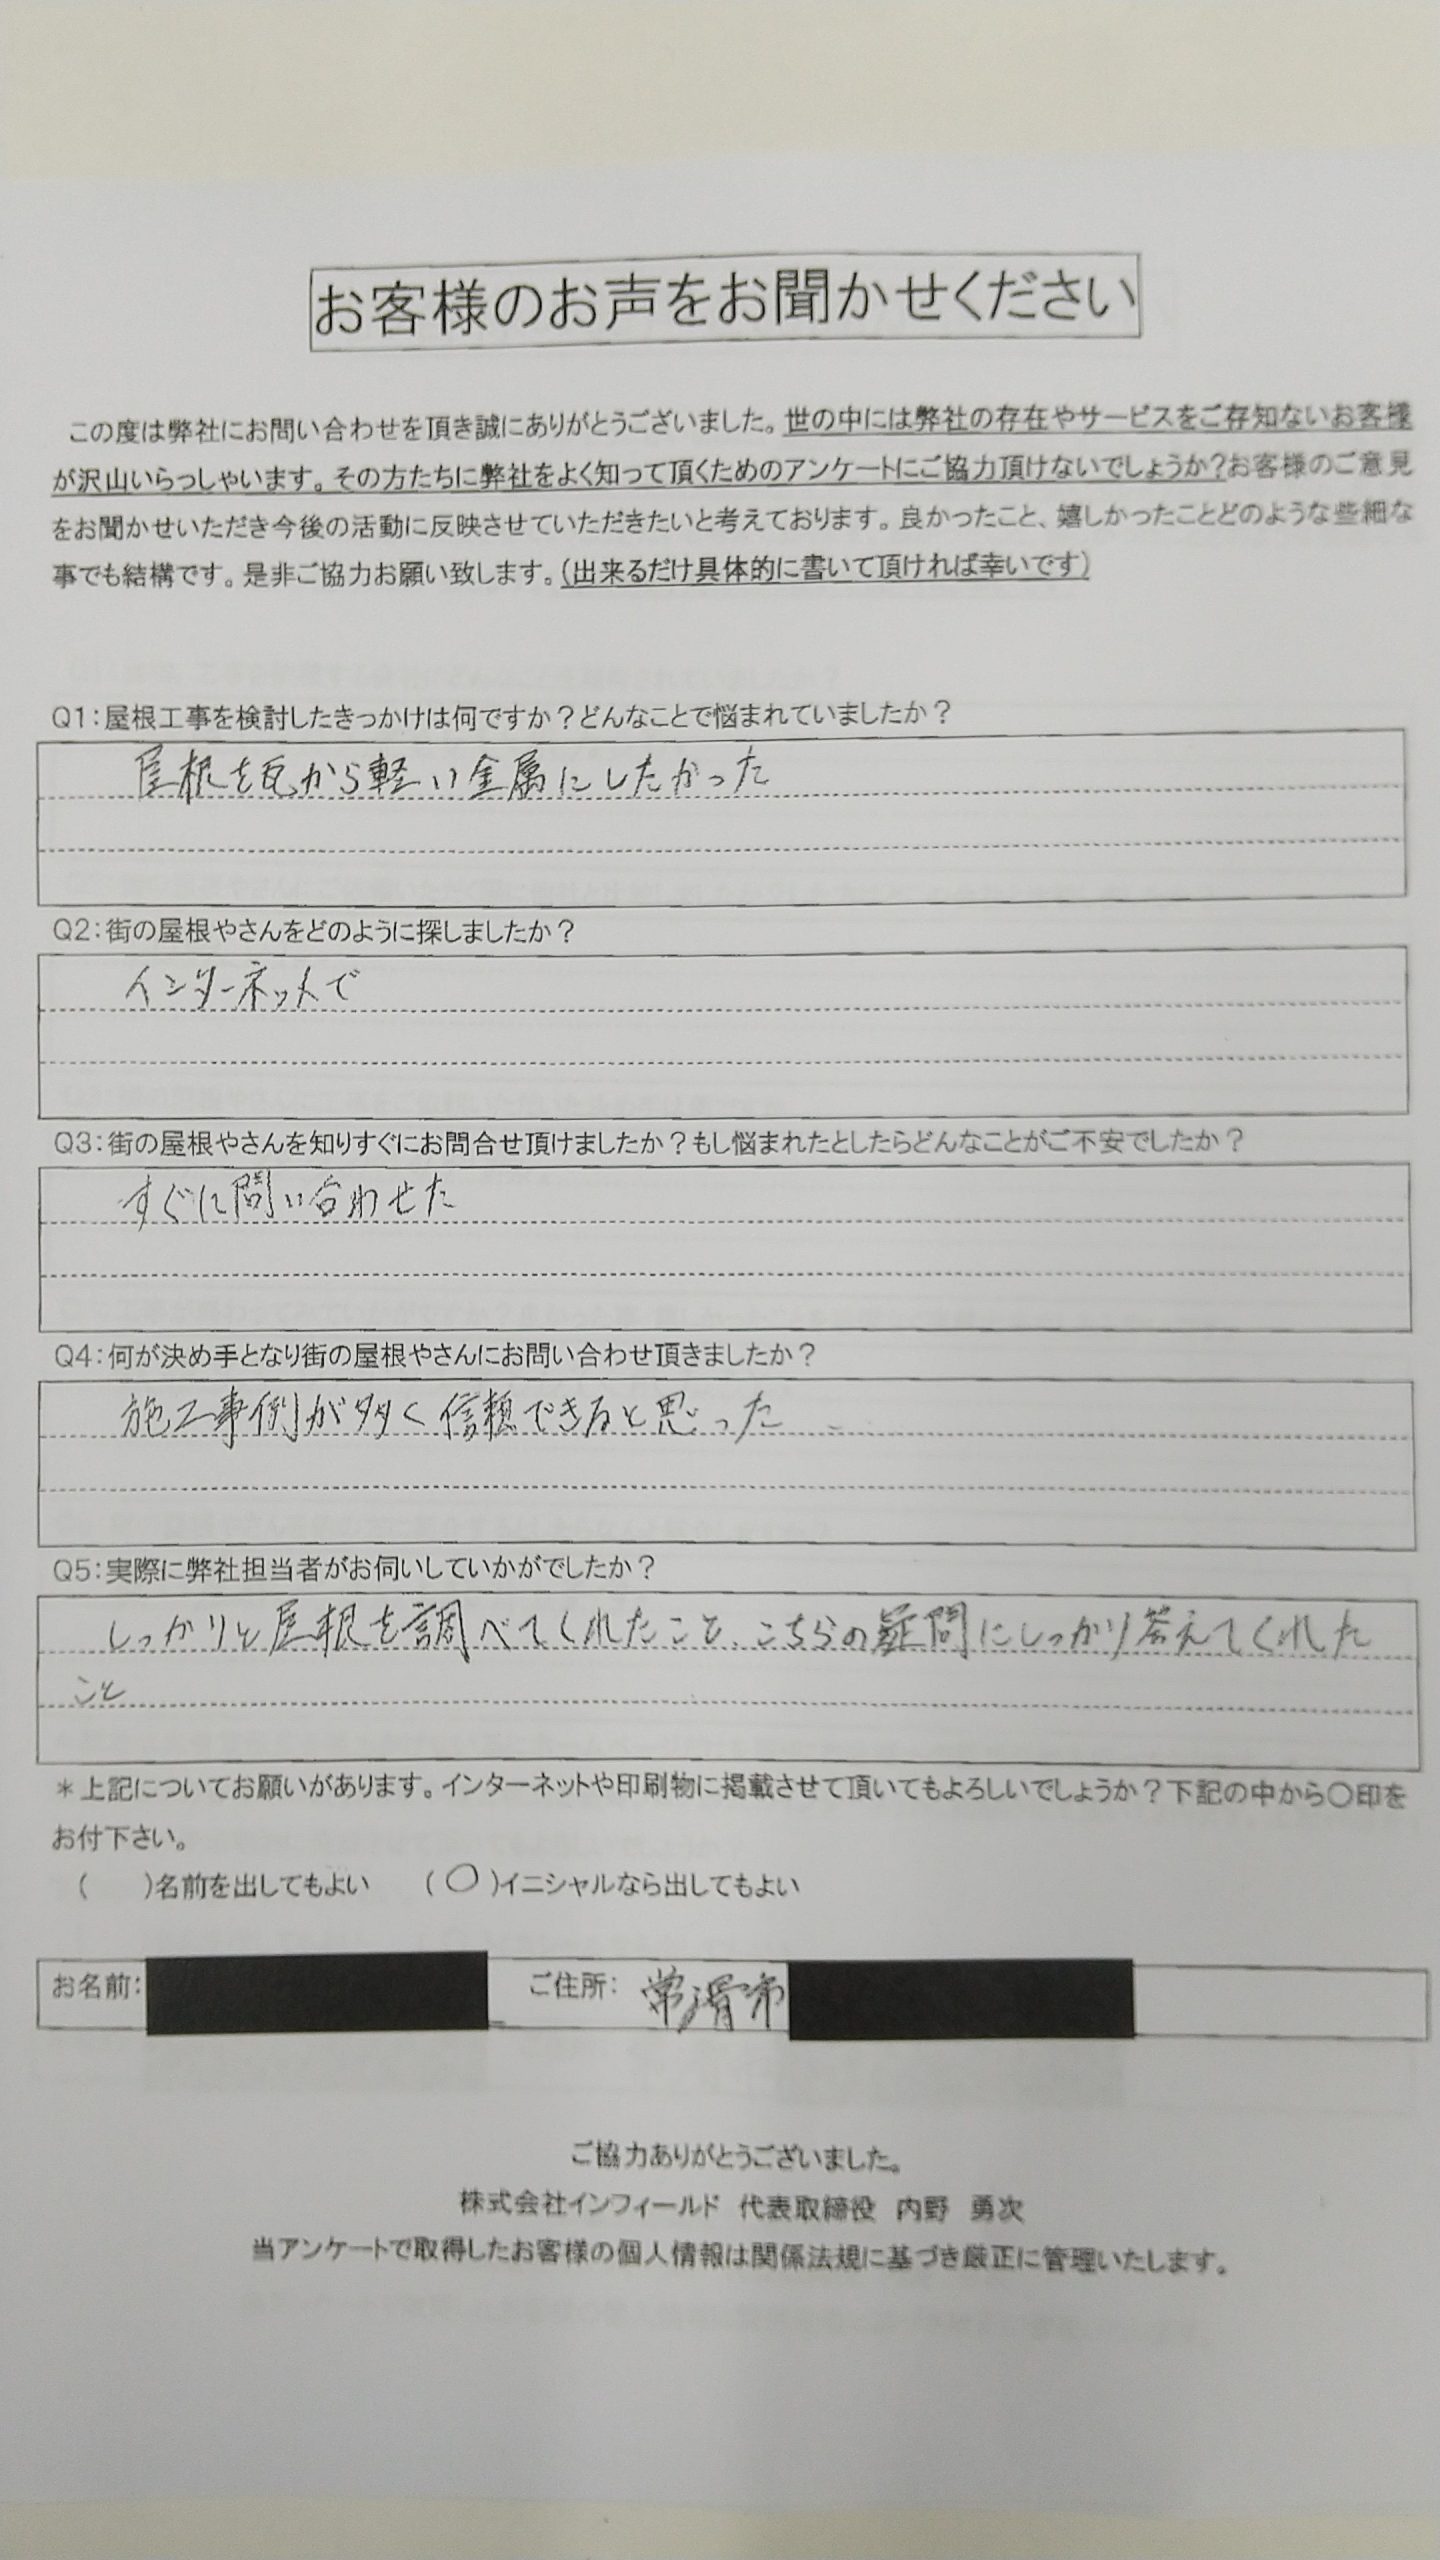 お客様のお声をお聞かせください
この度は弊社にお問い合わせを頂き誠にありがとうございました。世の中には弊社の存在やサービスをご存知ないお客様
が沢山いらっしゃいます。その方たちに弊社をよく知って頂くためのアンケートにご協力頂けないでしょうか?お客様のご意見
をお聞かせいただき今後の活動に反映させていただきたいと考えております。良かったこと、嬉しかったことどのような些細な
事でも結構です。是非ご協力お願い致します。(出来るだけ具体的に書いて頂ければ幸いです)
Q1:屋根工事を検討したきっかけは何ですか?どんなことで悩まれていましたか?
屋根を瓦から軽い金属にしたかった
Q2:街の屋根やさんをどのように探しましたか?
インターネットで
Q3:街の屋根やさんを知りすぐにお問合せ頂けましたか?もし悩まれたとしたらどんなことがご不安でしたか?
すぐに問い合わせた
Q4:何が決め手となり街の屋根やさんにお問い合わせ頂きましたか?
施工事例が多く信頼できると思った
Q5:実際に弊社担当者がお伺いしていかがでしたか?
しっかりと屋根を調べてくれたこと、こちらの疑問にしっかり答えてくれた
こと
*上記についてお願いがあります。インターネットや印刷物に掲載させて頂いてもよろしいでしょうか?下記の中から〇印を
お付下さい。
(　　)名前を出してもよい　　(〇)イニシャルなら出してもよい
お名前:　ご住所:常滑市
ご協力ありがとうございました。
株式会社インフィールド　代表取締役　内野　勇次
当アンケートで取得したお客様の個人情報は関係法規に基づき厳正に管理いたします。